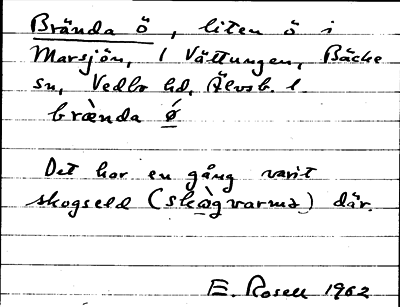 Brända ö, liten ö i
Marsjön, l Vättungen, Bäcke
sn, Vedbo hd, Älvsb. l.
bræ̀nda ǿ
Det har en gång varit
skogseld (skɑ̀gvarmə) där.
E. Rosell 1962